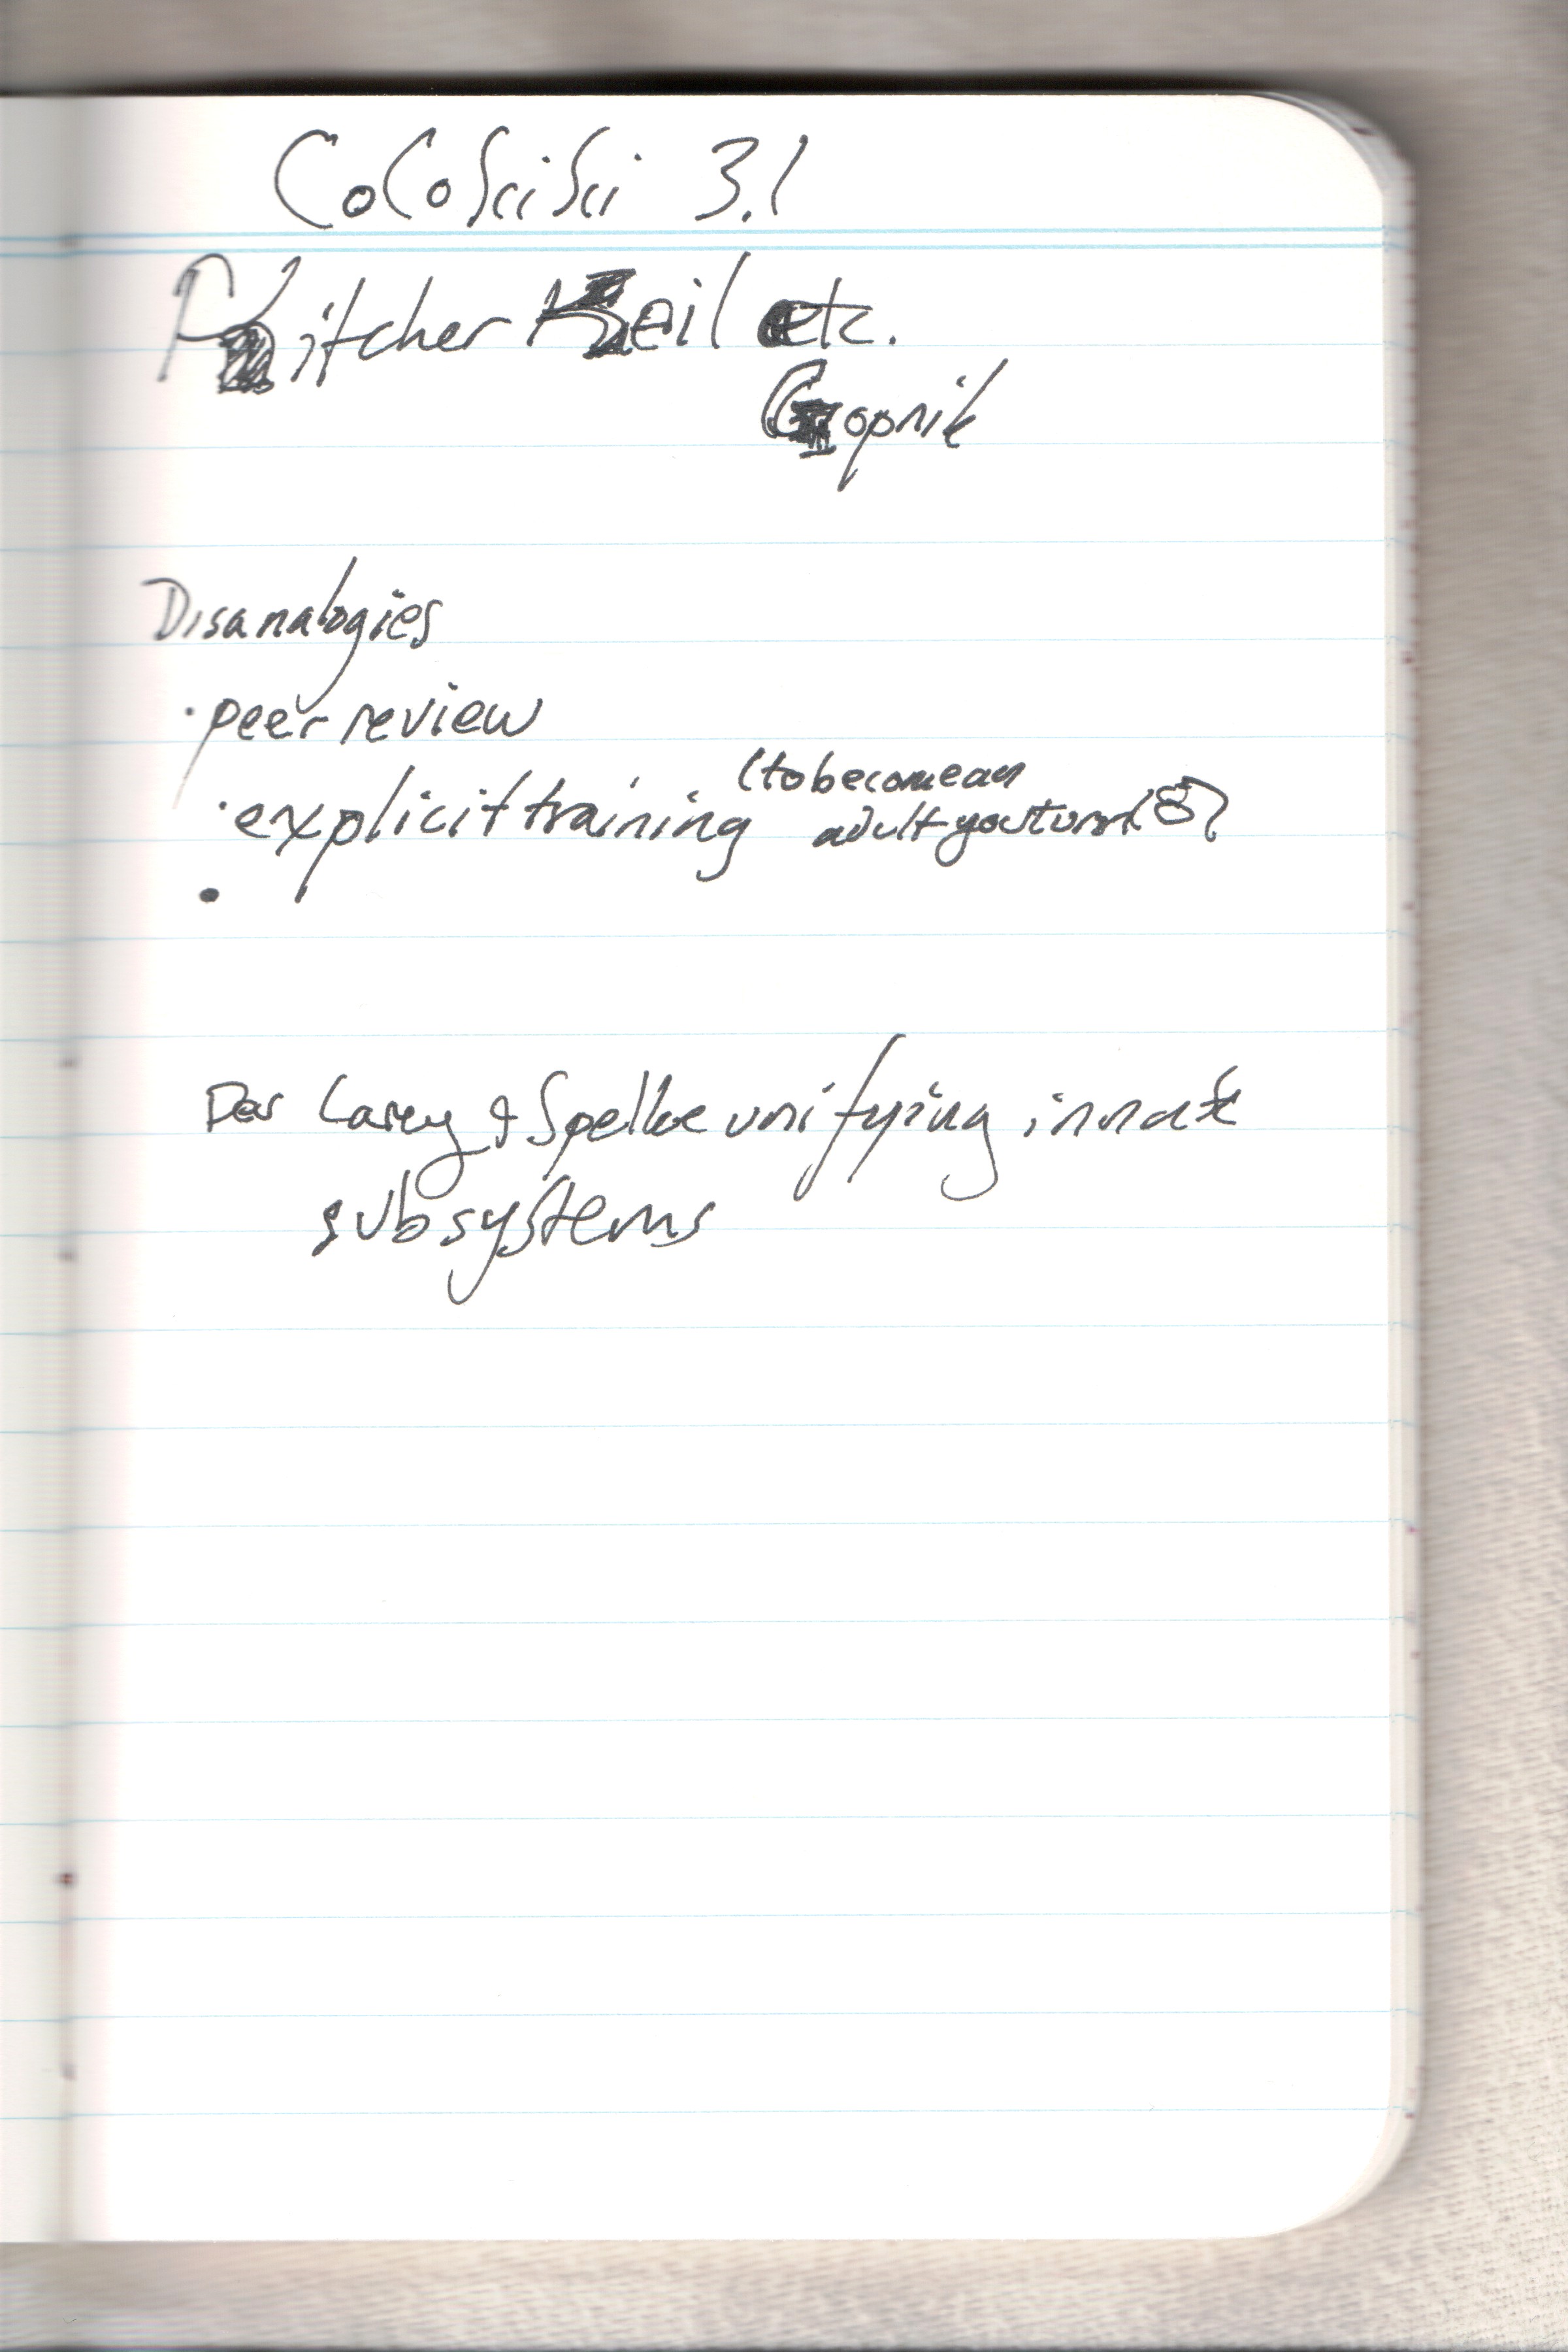 CoCoSciSci 3.1
Kitcher Keil etc.
Gopnik
Disanalogies
· peer review
· explicit training (to become an
adult you turn 18)
•
Carey & Spelke unifying innate
subsystems